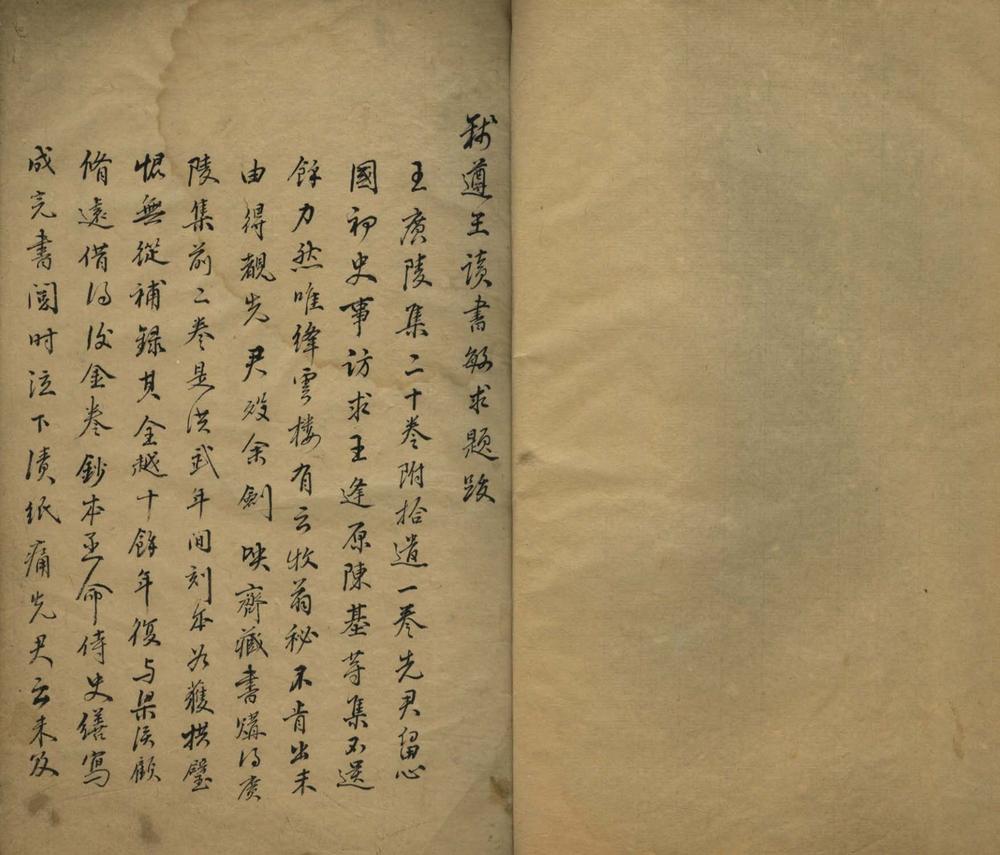 錢遵王讀書敏求題跋
王廣陵集二十卷附拾遺一卷先君留心
國初史事访求王逢原陳基等集不遗
餘力然唯絳雲樓有之牧翁秘不肯出未
由得觀先君歿余劍映齋藏書購得廣
陵集前二卷是洪武年间刻本如獲拱璧
恨無從補錄其全越十餘年復与梁溪顧
脩遠借得後金卷鈔本亟命侍史繕寫
成完書閱时泣下漬紙痛先君之未及